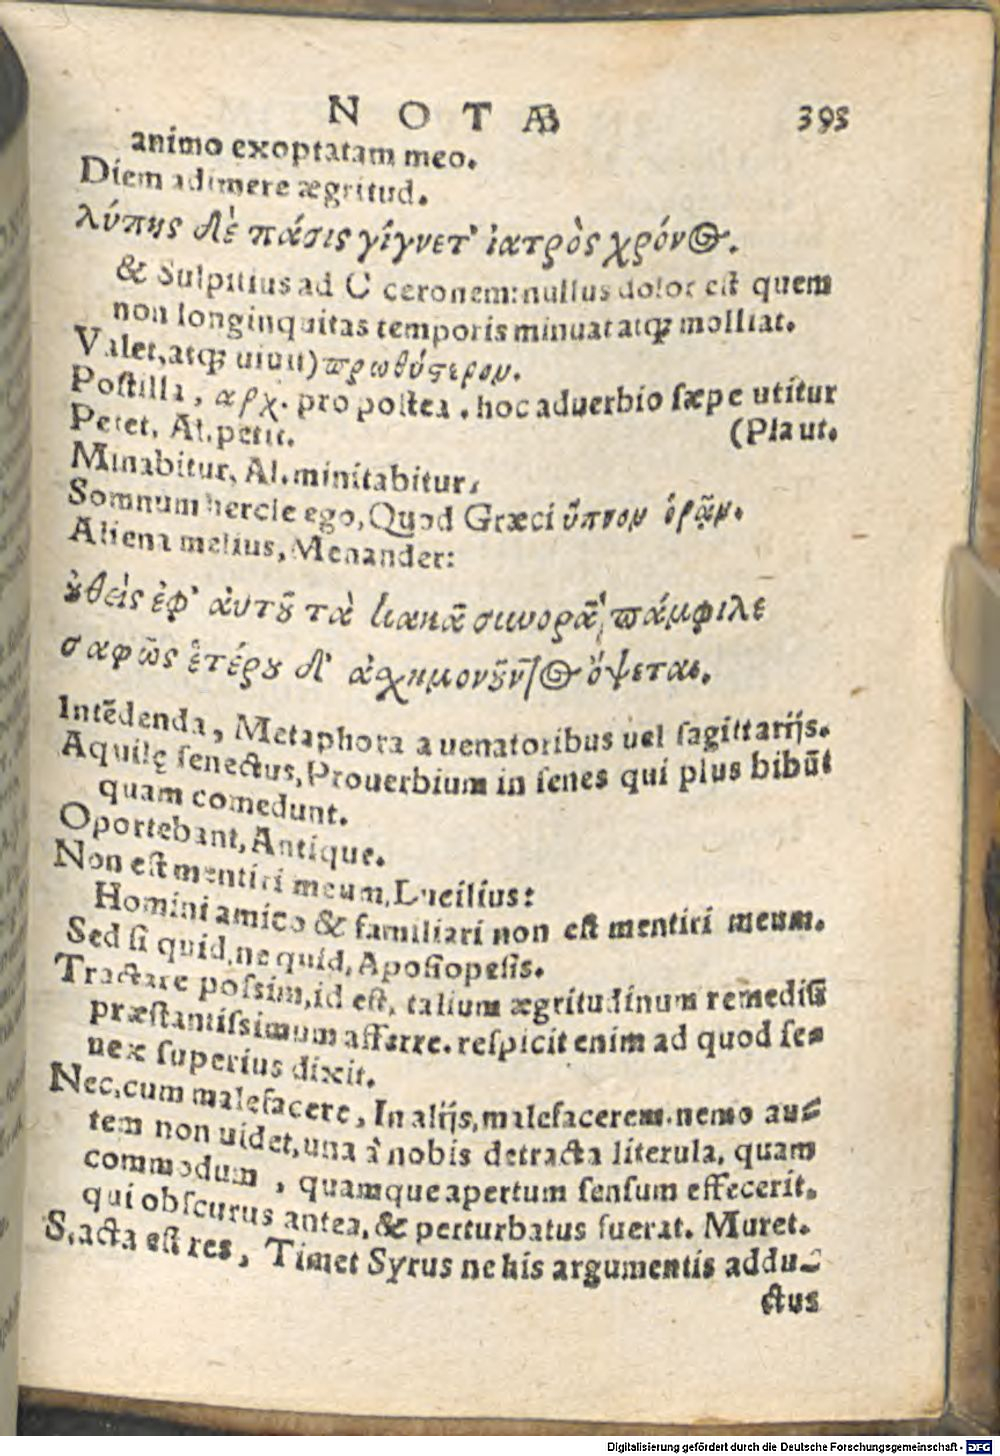 NOTÆ 393
animo exoptatam meo.
Diem adimere ægritud.
λύπης δὲ πάσις γίγνετ' ἰατρὸς χρόνος.
& Sulpitius ad Ciceronem: nullus dolor est quem
non longinquitas temporis minuat atq; molliat.
Valet, atq; uiuit) πρωθύςερομ.
Postilla, αρχ. pro postea. hoc aduerbio sæpe utitur
Petet, Al. petit. (Plaut.
Minabitur, Al. minitabitur,
Somnum hercle ego, Quod Græci ὕπνομ ὁρᾷμ.
Aliena melius, Menander:
ȣ̓θεὶς ἐφ' ἁυτȣ͂ τὰ κακᾶ σιωορᾷ, πάμφιλε
σαφῶς ἑτέρȣ δ' ἀχημονȣ͂ν ὄψεται.
Intēdenda, Metaphora a uenatoribus uel sagittarijs.
Aquilę senectus, Prouerbium in senes qui plus bibūt
quam comedunt.
Oportebant, Antique.
Non est mentiri meum, Lucilius:
Homini amico & familiari non est mentiri meum.
Sed si quid, ne quid, Aposiopesis.
Tractare possim, id est, talium ægritudinum remediū
præstantissimum afferre. respicit enim ad quod se=
nex superius dixit.
Nec, cum malefacere, In alijs, malefacerem. nemo au=
tem non uidet, una à nobis detracta literula, quam
commodum, quamque apertum sensum effecerit,
qui obscurus antea, & perturbatus fuerat. Muret.
S, acta est res, Timet Syrus ne his argumentis addu=
ctus
Digitalisierung gefördert durch die Deutsche Forschungsgemeinschaft - DFG